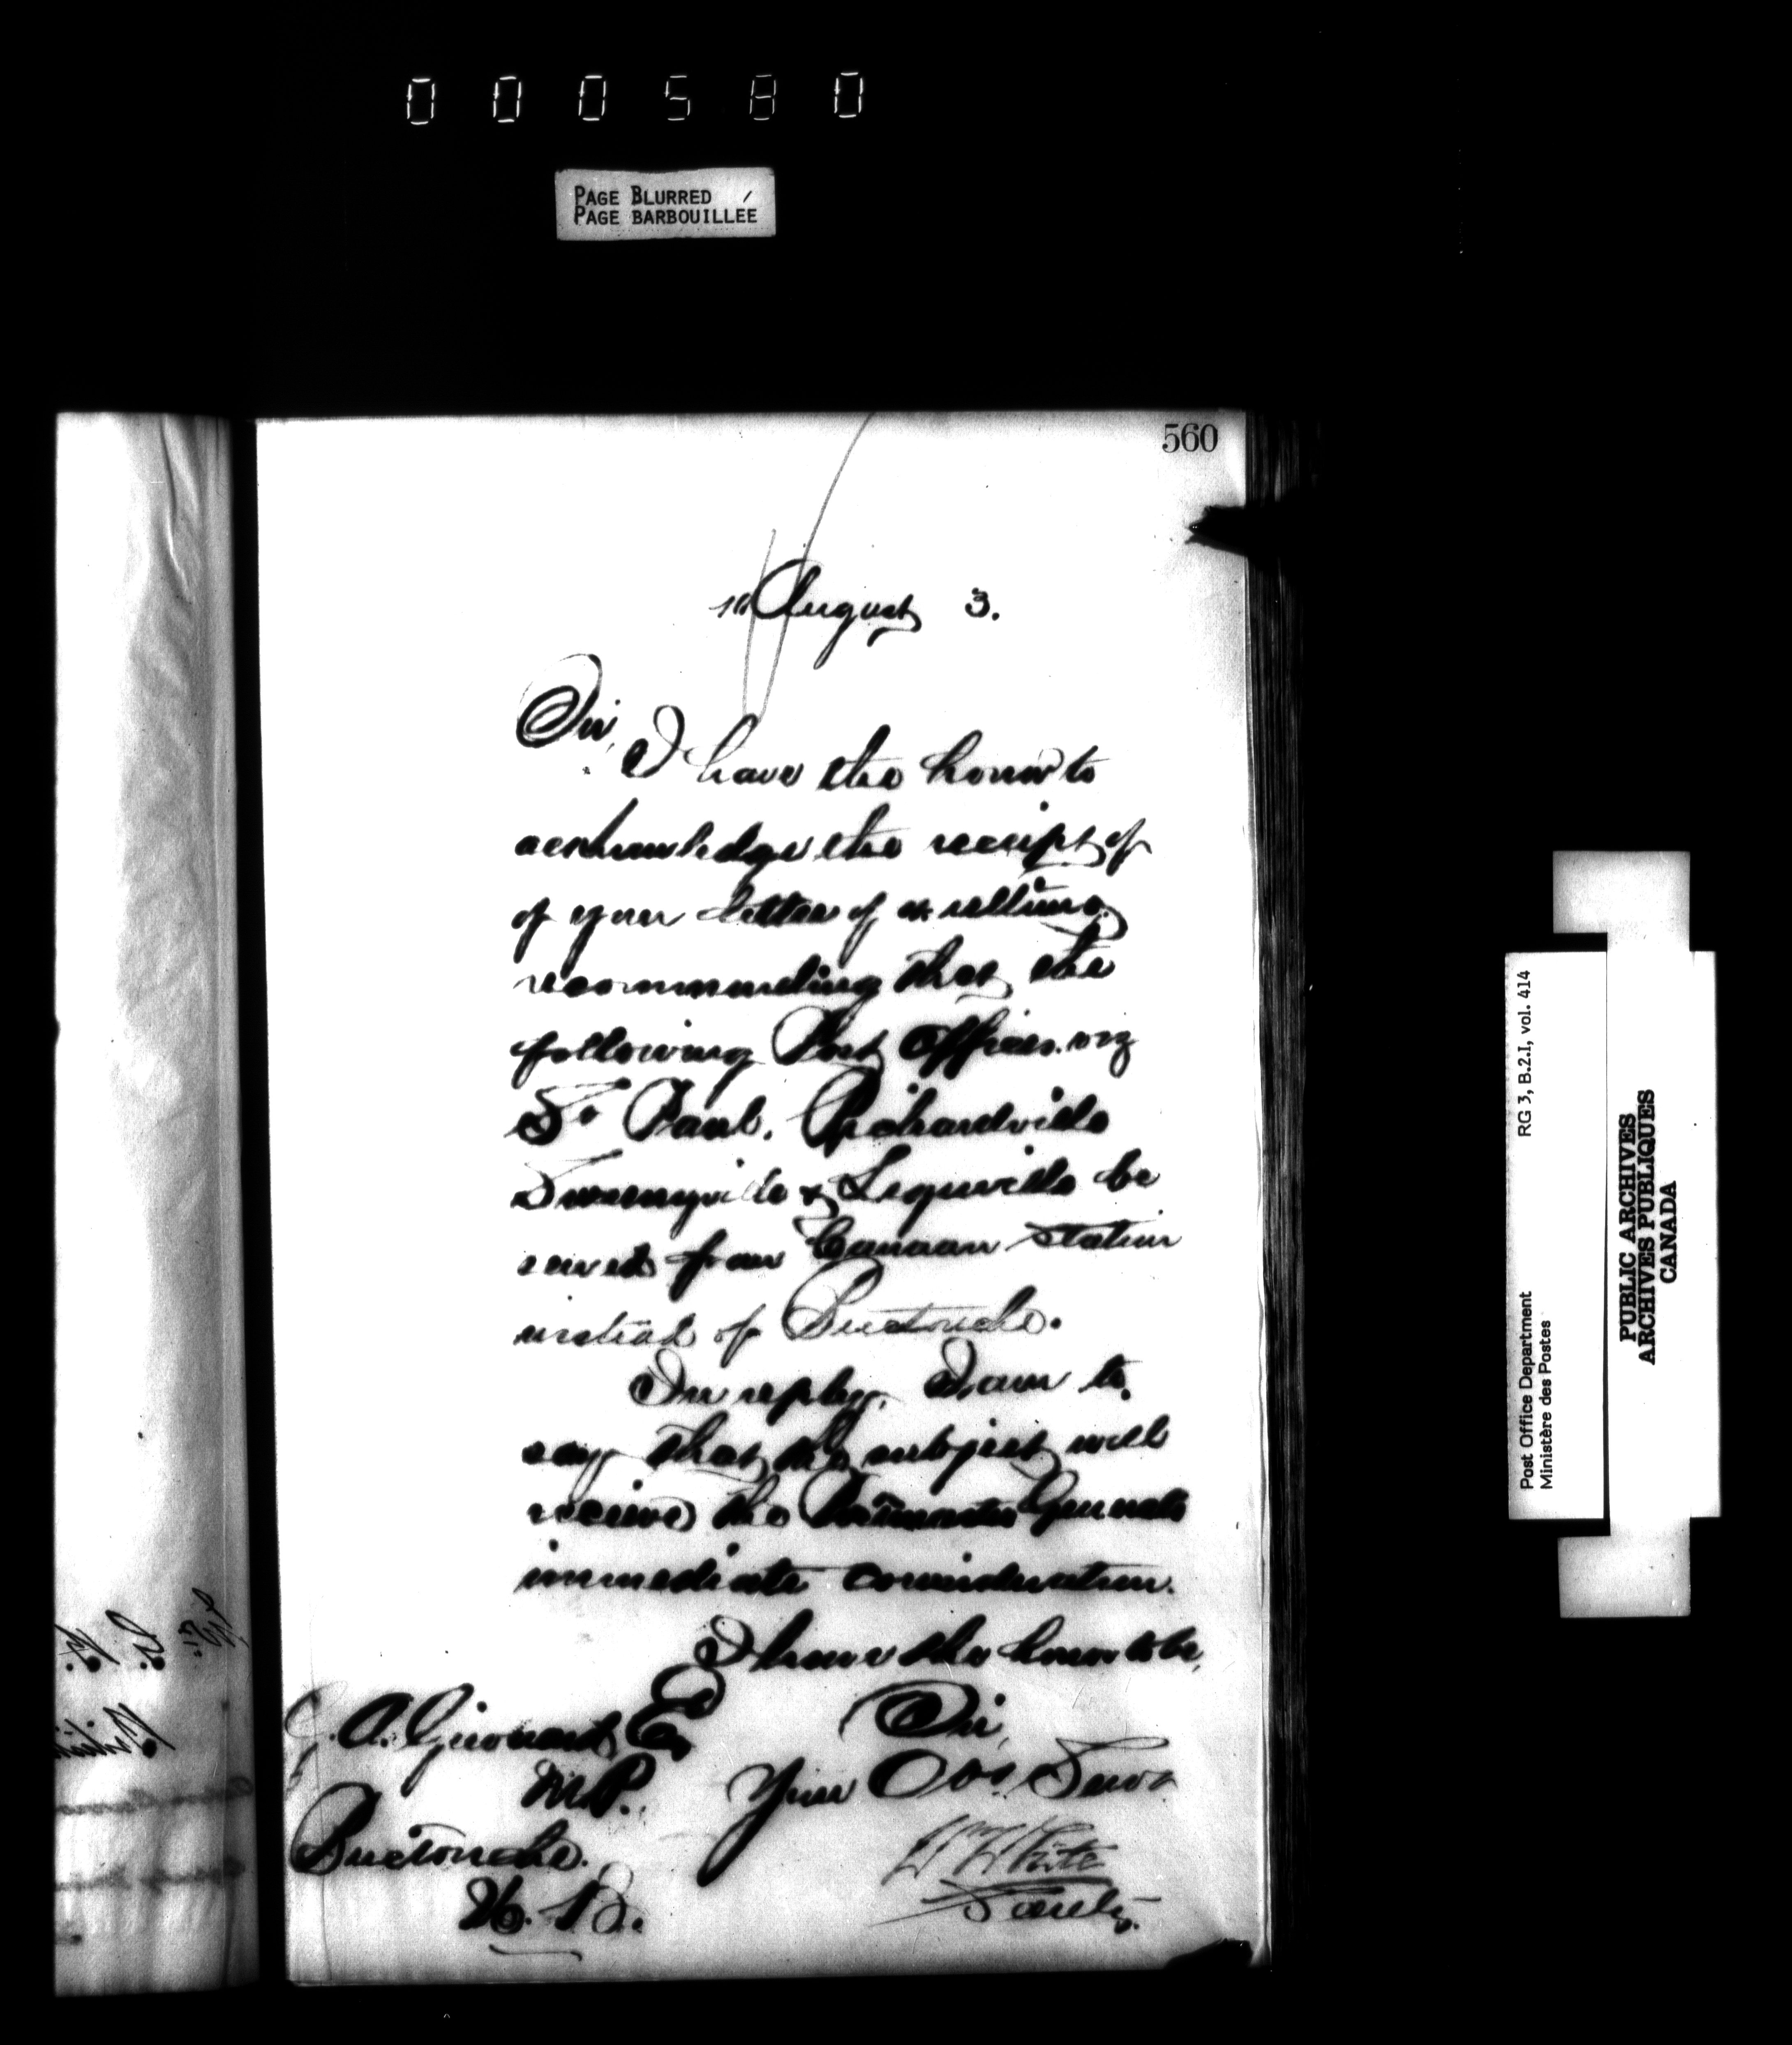 000580
PAGE BLURRED
PAGE BARBOUILLÉE
560
10 August 3.
Sir,
I have the honor to
acknowledge the receipt of
of your letter of ultimo
recommending that the
following Post Offices. viz
St Paul. Richardville
Sweenyville & Legerville be
served from Canaan Station
instead of Buctouche.
In reply, I am to
say that the subject will
receive the Postmaster Generals
immediate consideration.
I have the honor to be,
Sir,
Your Obt. Servt
W White
Secrety.
G. A. Girouard Esq
M.P.
Buctouche.
N. B.
Post Office Department
Ministère des Postes
RG 3, B.2.I, vol. 414
PUBLIC ARCHIVES
ARCHIVES PUBLIQUES
CANADA